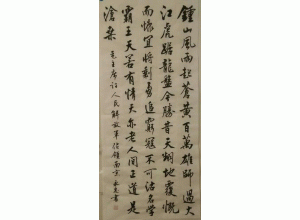 鍾山風雨起蒼黄百萬雄師過大
江虎踞龍盤今勝昔天翻地覆慨
而慷宜將剩勇追窮寇不可沽名學
霸王天若有情天亦老人间正道是
滄桑
毛主席詩人民解放軍佔領南京 書